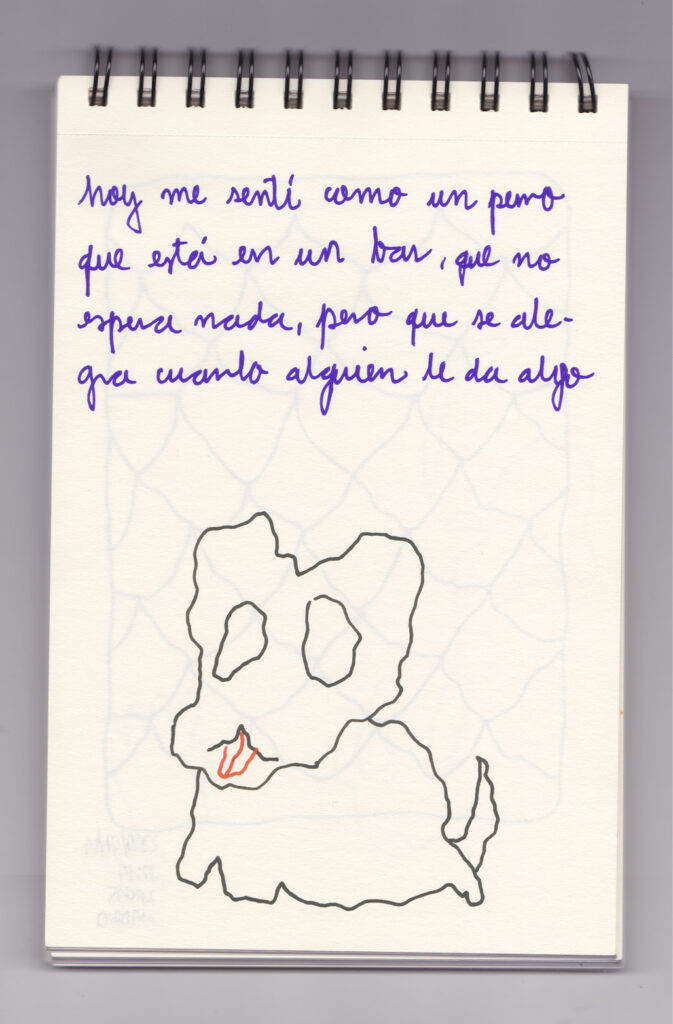 hoy me sentí como un perro
que está en un bar, que no
espera nada, pero que se ale-
gra cuando alguien le da algo